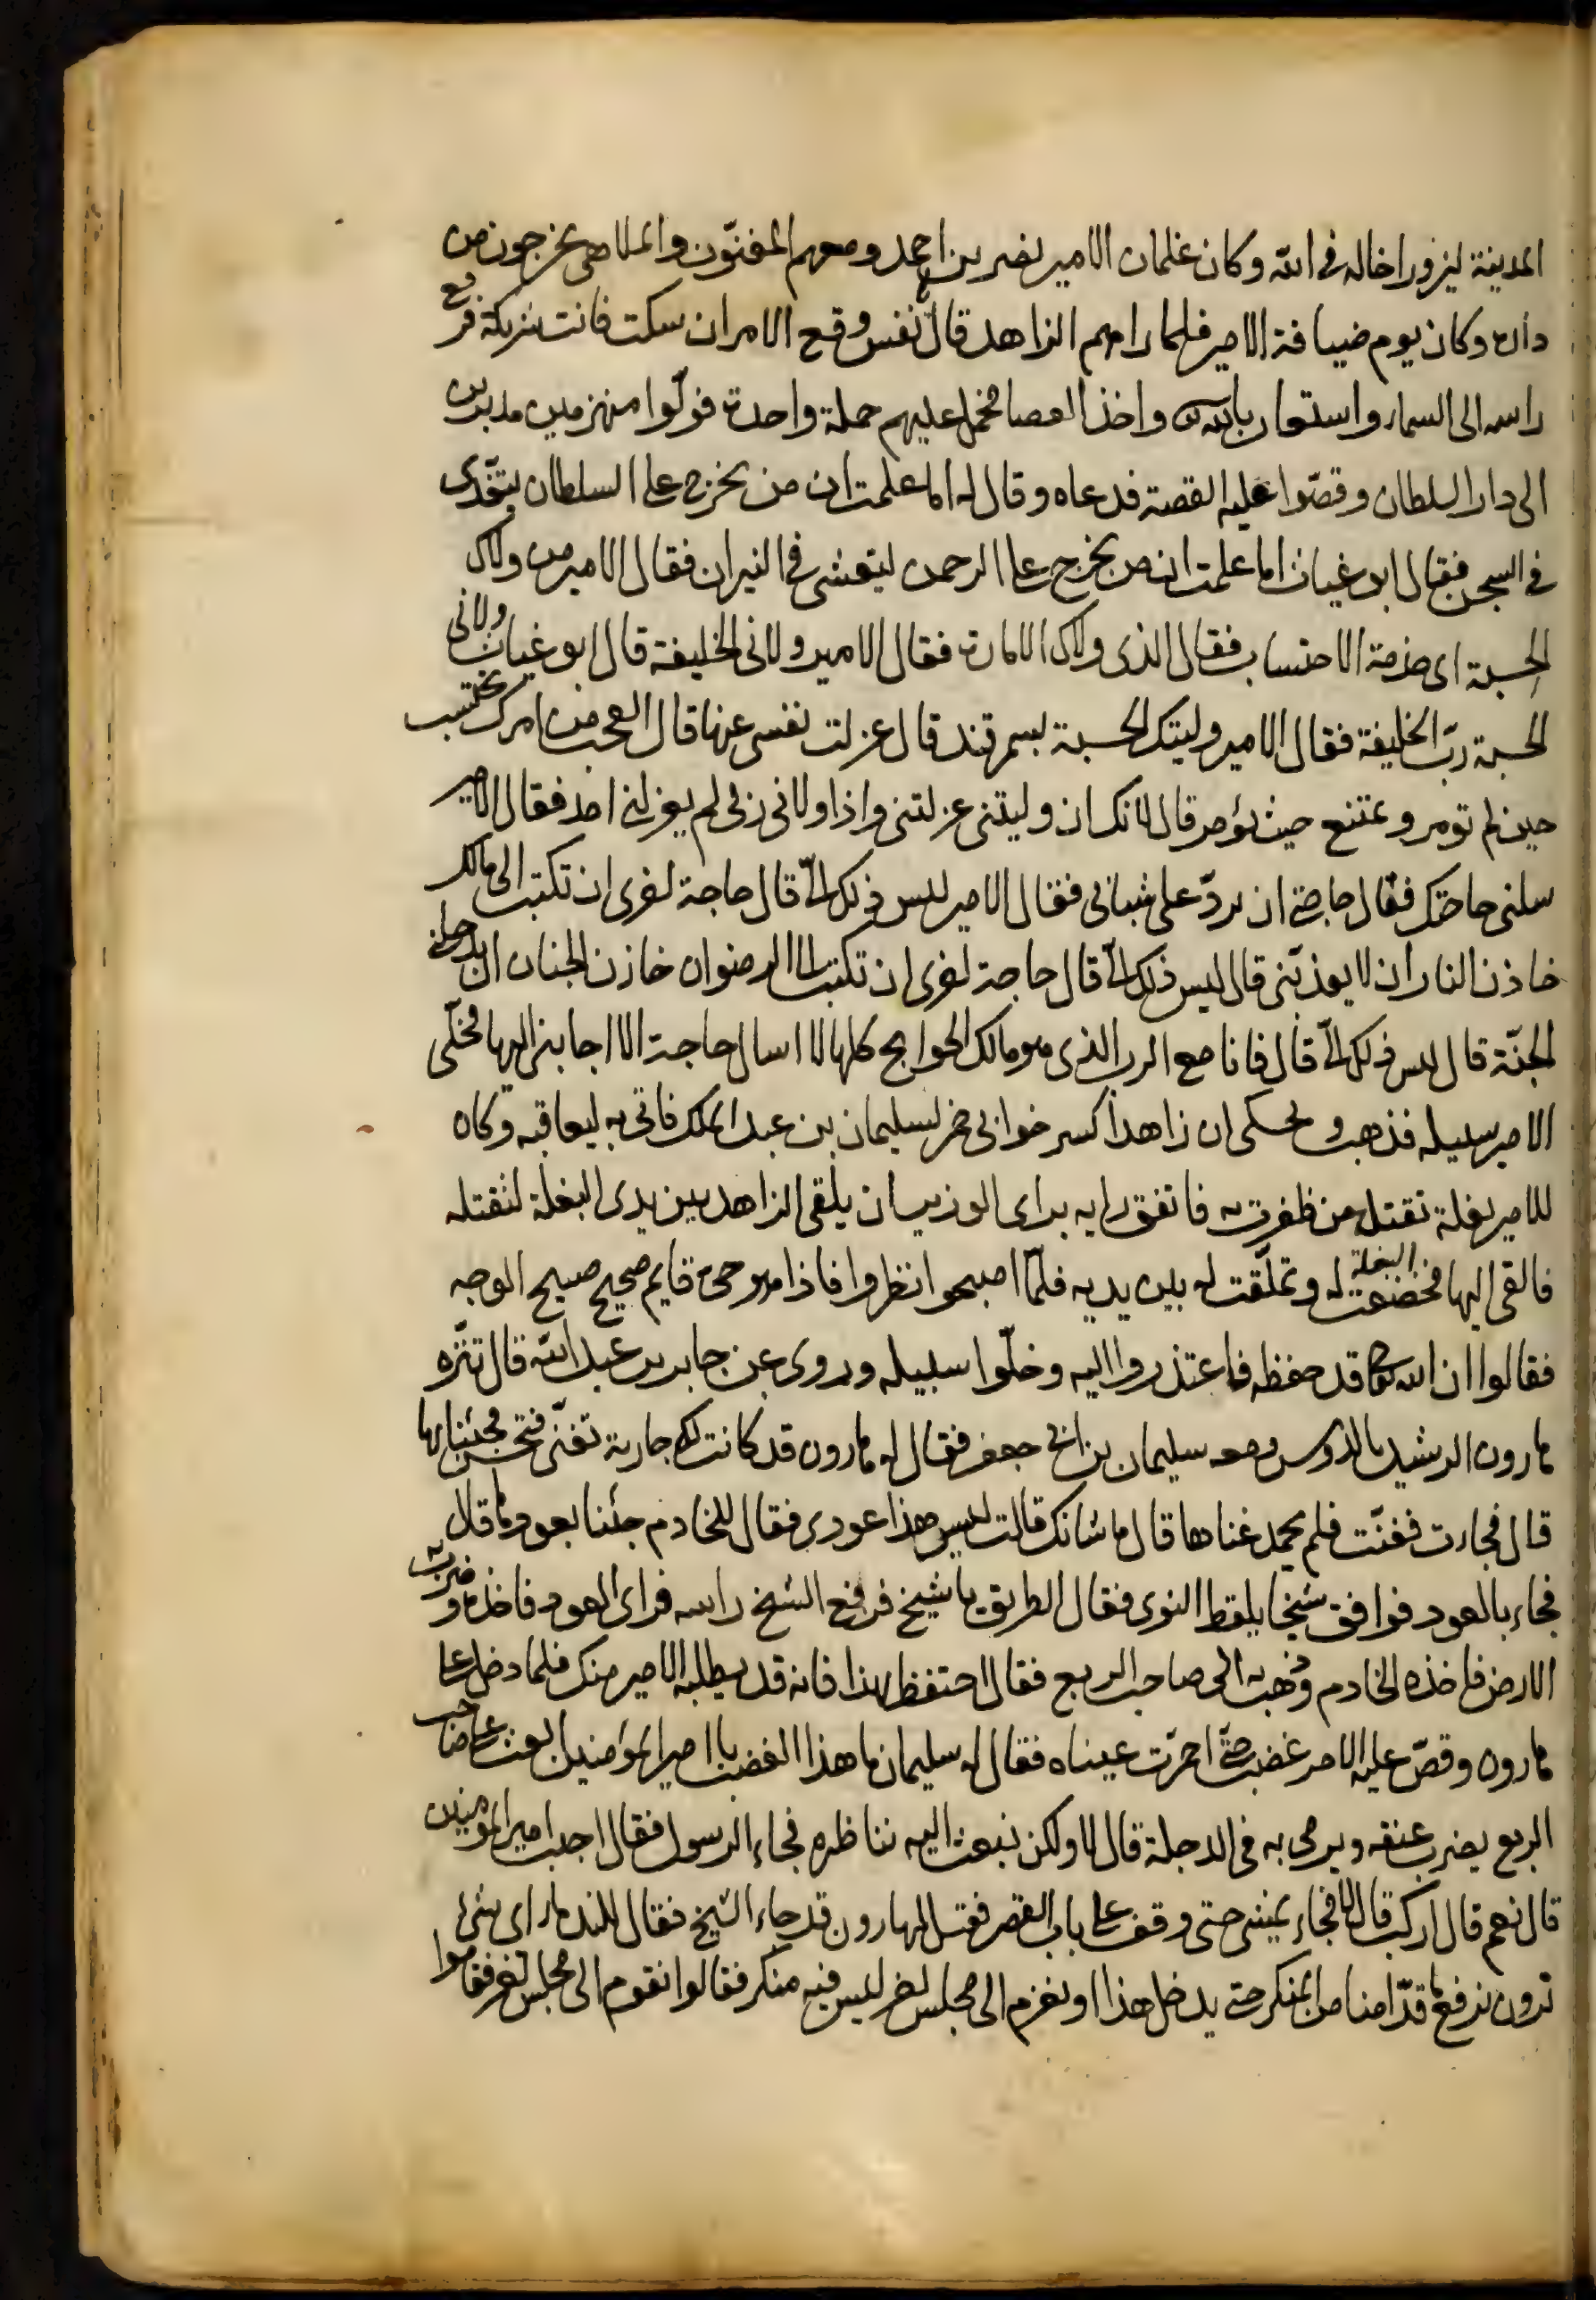 المدينة ليزور اخاله فى الله وكان غلمان الامير نصر بن احمد ومعهم المغنّون والملاهى يخرجون من
داره وكان يوم ضيافة الامير فلما راهم الزاهد قال يا نفس وقع الامر ان سكت فانت شريكة فرفع
راسه الى السماء واستعان بالله واخذ العصا فحمل عليهم حملة واحدة فولّوا منهزمين مدبرين
الى دار السلطان وقصّوا عليه القصة فدعاه وقال له اما علمت ان من يخرج على السلطان يتغدى
فى السجن فقال ابو غياث اما علمت انه من يخرج على الرحمن ليتعشى فى النيران فقال الامير من ولاك
الحسبة اى خدمة الاحتساب فقال الذى ولاك الامارة فقال الامير ولانى الخليفة قال ابو غياث ولانى
الحسبة ربّ الخليفة فقال الامير وليتك الحسبة بسمرقند قال عزلت نفسى عنها قال العجب من امرك تحتسب
حين لم تؤمر وتمتنع حيث تؤمر قال لانك ان وليتنى عزلتنى واذا ولانى ربى لم يعزلنى احد فقال الامير
سلنى حاجتك فقال حاجتى ان تردّ على شبابى فقال الامير ليس ذلك الىّ قال حاجة اخرى ان تكتب الى مالك
خازن النار ان لا يعذبنى قال ليس ذلك الىّ قال حاجة اخرى ان تكتب الى الرضوان خازن الجنان ان يدخلنى
الجنّة قال ليس ذلك الىّ قال فانا مع الرب الذى هو مالك الحوايج كلها لا اسال حاجة الا اجابنى اليها فخلّى
الامير سبيله فذهب وحكى ان زاهدا كسر خوابى خمر لسليمان بن عبد الملك فاتى به ليعاقبه وكان
للامير بغلة تقتل من ظفرت به فاتفق رايه براى الوزير ان يلقى الزاهد بين يدى البغلة لتقتله
فالقى اليها فخضعت البغلة له وتملّقت له بين يديه فلمّا اصبحوا نظروا فاذا هو حى قايم صحيح صبيح الوجه
فقالوا ان الله تعالى قد حفظه فاعتذروا اليه وخلّوا سبيله وروى عن جابر بن عبد الله قال تنزّه
هارون الرشيد بالدوس ومعه سليمان بن ابى جعفر فقال له هارون قد كانت لك جارية تغنّى فتحسن فجئنا بها
قال فجاءت فغنّت فلم يحمد غناءها قال ما شانك قالت ليس هذا عودى فقال للخادم جئنا بعودها قال
فجاء بالعود فوافق شيخا يلقط النوى فقال الطريق يا شيخ فرفع الشيخ راسه فراى العود فاخذه وضرب به
الارض فاخذه الخادم وذهب به الى صاحب الربع فقال احتفظ بهذا فانه قد يطلبه الامير منك فلما دخل على
هارون وقصّ عليه الامر غضب حتى احمرّت عيناه فقال له سليمان ما هذا الغضب يا امير المؤمنين ابعث على صاحب
الربع يضرب عنقه ويرمى به فى الدجلة قال لا ولكن نبعث اليه نناظره فجاء الرسول فقال اجب امير المؤمنين
قال نعم قال اركب قال لا فجاء يمشى حتى وقف على باب القصر فقيل لهارون قد جاء الشيخ فقال للندما اى شئ
ترون نرفع ما قدّامنا من المنكر حتى يدخل هذا او نقوم الى مجلس اخر ليس فيه منكر فقالوا نقوم الى مجلس اخر فقاموا